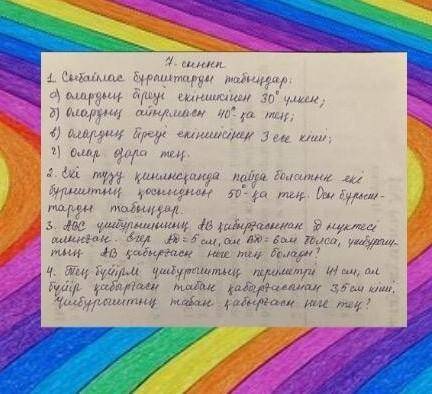 7-сынып
1. Сыбайлас бұрыштарды табыңдар:
а) олардың біреуі екіншісінен 30° үлкен;
б) олардың айырмасы 40°-қа тең;
в) олардың біреуі екіншісінен 3 есе кіші;
г) олар өзара тең.
2. Екі түзу қиылысқанда пайда болатын екі
бұрыштың қосындысы 50°-қа тең. Осы бұрыш-
тарды табыңдар.
3. АВС үшбұрышының АВ қабырғасынан D нүктесі
алынған. Егер АD = 5 см, ал ВD = 6 см болса, үшбұрыш-
тың АВ қабырғасы неге тең болады?
4. Тең бүйірлі үшбұрыштың периметрі 41 см, ал
бүйір қабырғасы табан қабырғасынан 3,5 см кіші.
Үшбұрыштың табан қабырғасы неге тең?